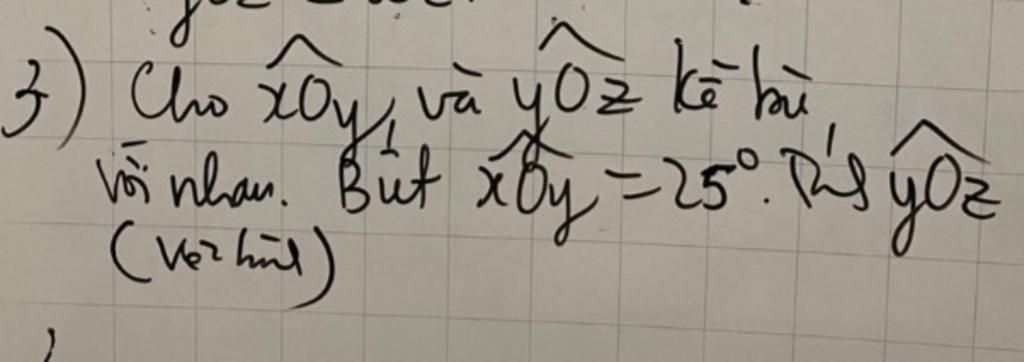 3) Cho xÔy, và yÔz kề bù
với nhau. Biết xÔy = 25°. Tính yÔz
(Vẽ hình)